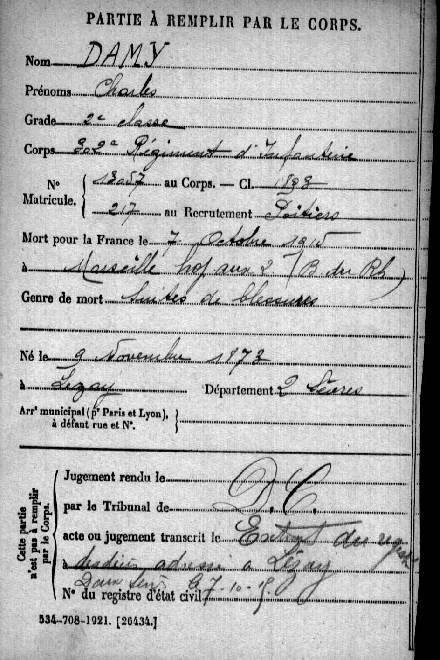 PARTIE À REMPLIR PAR LE CORPS.
Nom DAMY
Prénoms Charles
Grade 2e classe
Corps 302e Régiment d'Infanterie
N° Matricule. { 13057 au Corps. — Cl. 1893
217 au Recrutement Poitiers
Mort pour la France le 7 Octobre 1915
à Marseille hop aux 2 (B du Rh)
Genre de mort Suites de blessures
Né le 9 Novembre 1873
à Lezay Département 2 Sèvres
Arrt municipal (pr Paris et Lyon),
à défaut rue et N°.
Cette partie n'est pas à remplir par le Corps.
Jugement rendu le
par le Tribunal de D.C.
acte ou jugement transcrit le Extrait des
à adressé à Lezay
N° du registre d'état civil 7-10-15
534-708-1921. [26434.]